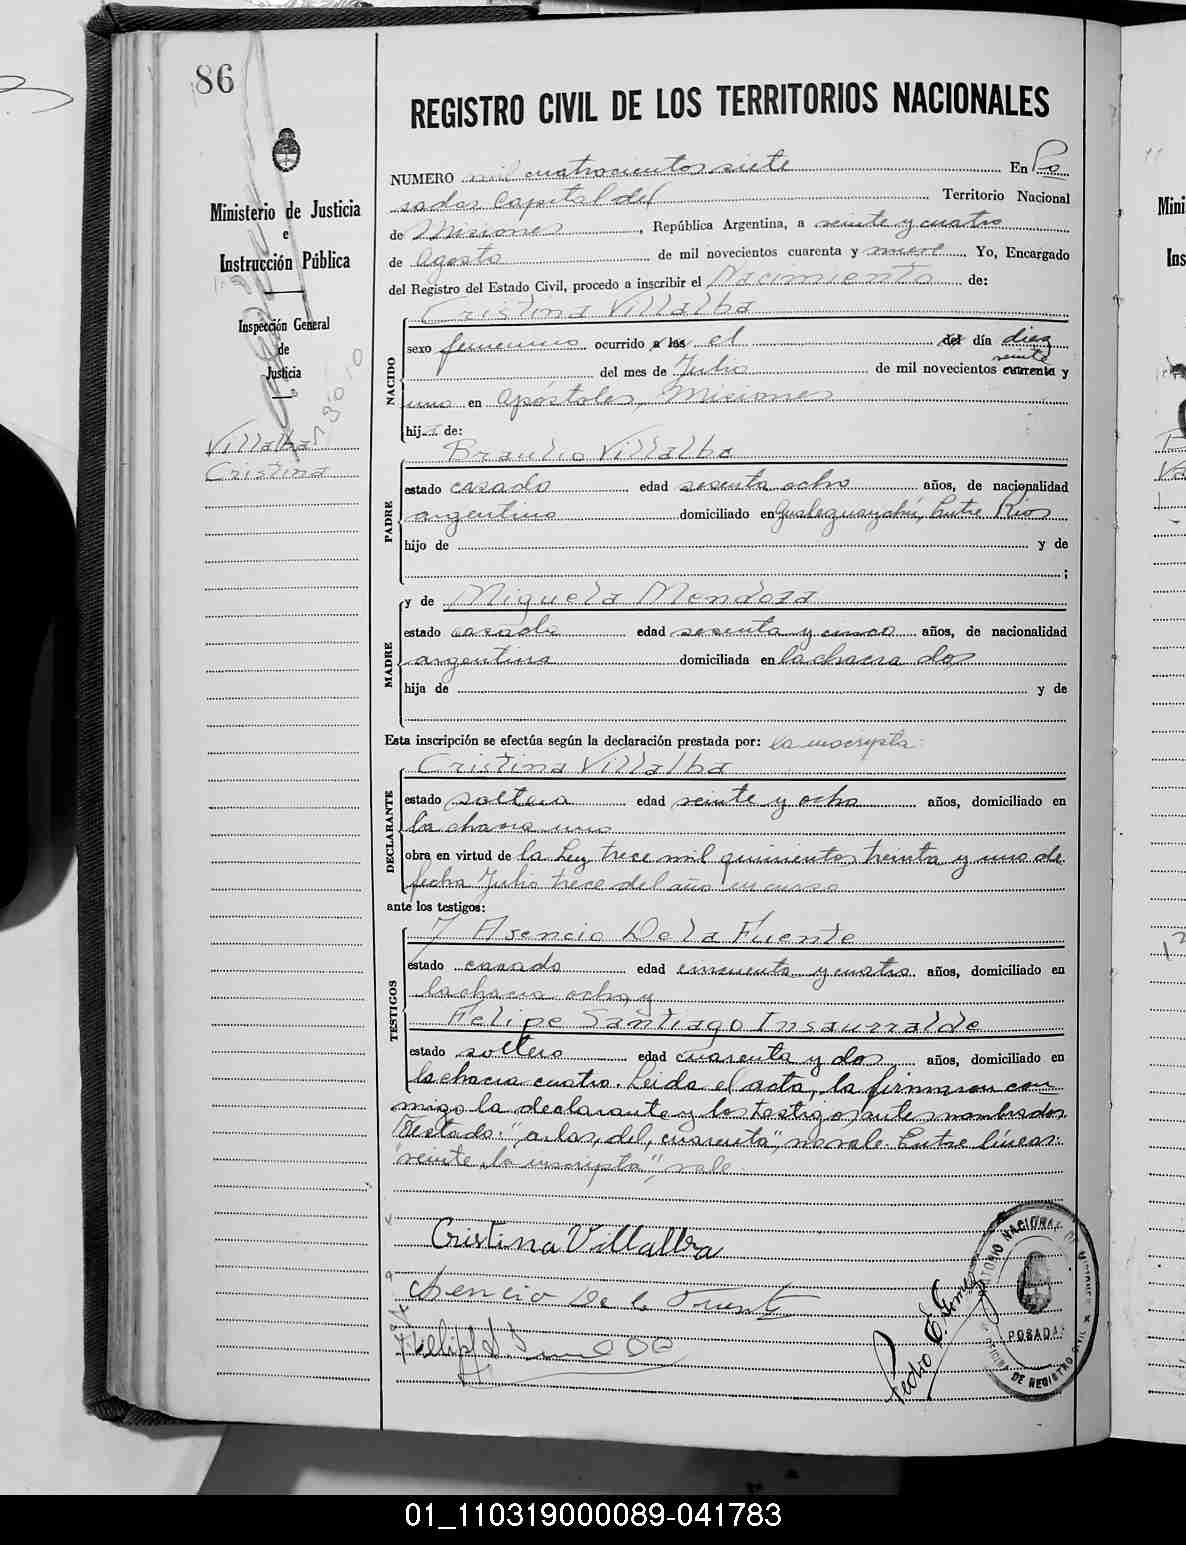 86
REGISTRO CIVIL DE LOS TERRITORIOS NACIONALES
Ministerio de Justicia
e
Instrucción Pública
Inspección General
de
Justicia
Villalba
Cristina
NUMERO mil cuatrocientos siete En Po
sadas Capital del Territorio Nacional
de Misiones, República Argentina, a veinte y cuatro
de Agosto de mil novecientos cuarenta y nueve, Yo, Encargado
del Registro del Estado Civil, procedo a inscribir el Nacimiento de:
Cristina Villalba
NACIDO
sexo femenino ocurrido a las el del día diez
veinte
del mes de Julio de mil novecientos cuarenta y
uno en Apóstoles, Misiones
hija de:
Braulio Villalba
PADRE
estado casado edad sesenta ocho años, de nacionalidad
argentino domiciliado en Gualeguaychú, Entre Rios
hijo de y de
;
y de Miguela Mendoza
MADRE
estado casada edad sesenta y cinco años, de nacionalidad
argentina domiciliada en la chacra dos
hija de y de
Esta inscripción se efectúa según la declaración prestada por: la inscripta
Cristina Villalba
DECLARANTE
estado soltera edad veinte y ocho años, domiciliado en
la chacra uno
obra en virtud de la Ley trece mil quinientos treinta y uno de
fecha Julio trece del año en curso
ante los testigos:
Asencio De la Fuente
TESTIGOS
estado casado edad cincuenta y cuatro años, domiciliado en
la chacra ocho, y
Felipe Santiago Insaurralde
estado soltero edad cuarenta y dos años, domiciliado en
la chacra cuatro. Leida el acta, la firmaron con
migo la declarante y los testigos antes nombrados
Testado: "a las, del, cuarenta", no vale. Entre líneas:
"veinte, la inscripta", vale.
Cristina Villalba
Asencio De la Fuente
Pedro E. Gomez
POSADAS
01_110319000089-041783